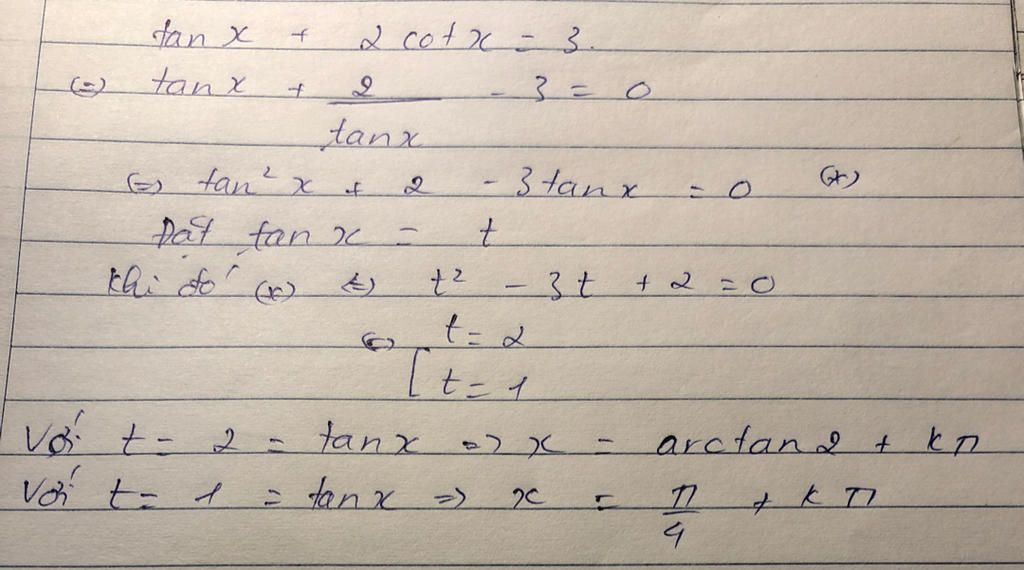 tan x + 2 cot x = 3.
(=) tan x + 2/tan x - 3 = 0
(=) tan² x + 2 - 3 tan x = 0 (*)
Đặt tan x = t
Khi đó (*) (=) t² - 3t + 2 = 0
(=) [ t = 2
t = 1
Với t = 2 = tan x => x = arctan 2 + kπ
Với t = 1 = tan x => x = π/4 + kπ